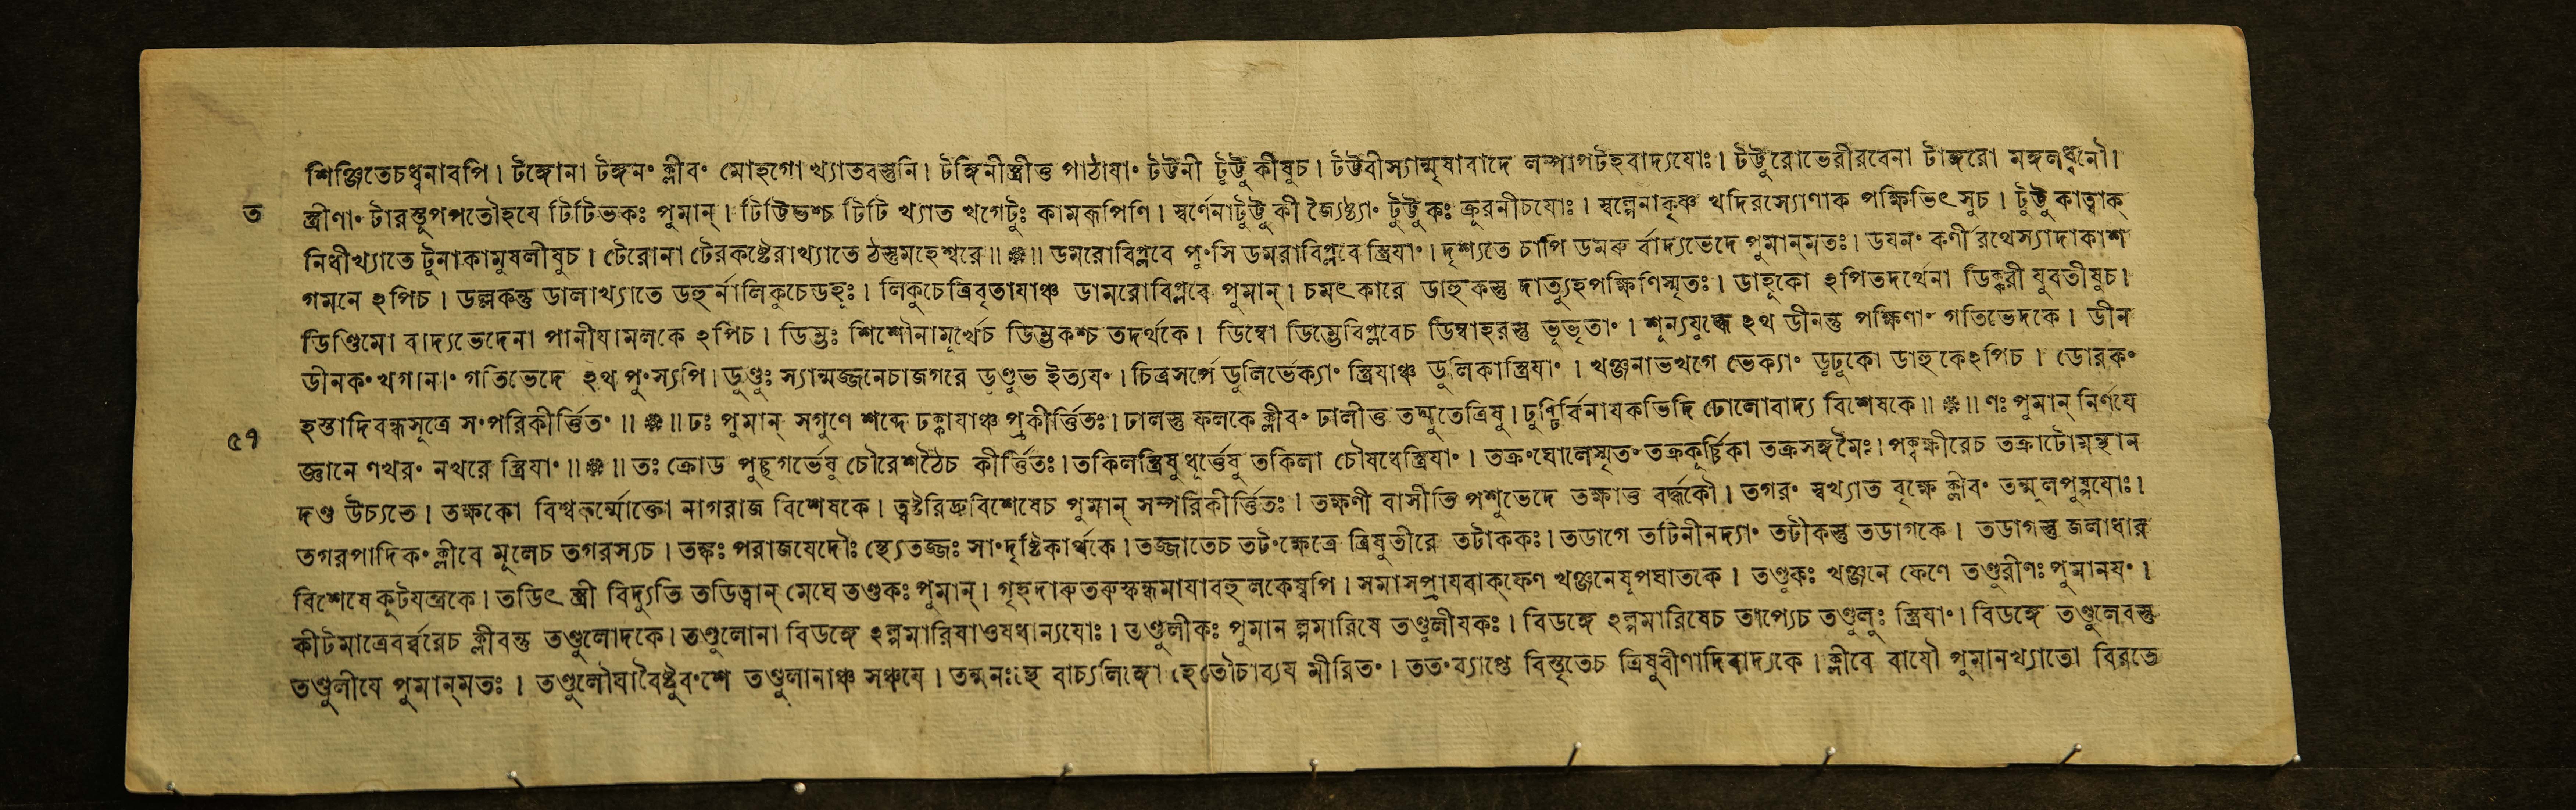 শিঞ্জিতেচধ্বনাবপি। টঙ্গোনা টঙ্গন৹ ক্লীব৹ মোহগো খ্যাতবস্তুনি। টঙ্গিনীস্ত্রীত্ত পাঠাযা৹ টণ্টনী টুট্টু কীষুচ। টট্টবীস্যান্মৃষাবাদে লম্পাপটহবাদ্যযোঃ। টট্টুরোভেরীরবেনা টাঙ্গরো মঙ্গলধ্বনৌ।
ত
স্ত্রীণা৹ টারস্তুপপতৌহযে টিটিভকঃ পুমান্। টিট্টিভশ্চ টিটি খ্যাত খগেটুঃ কামরূপিণি। স্বর্ণেনাটুট্টু কী জ্যৈষ্ঠ্যা৹ টুট্টুকঃ ক্রূরনীচযোঃ। স্বল্পেনাকৃষ্ণ খদিরস্যোণাক পক্ষিভিৎসুচ। টুট্টু কাত্বাক্
নিধীখ্যাতে টুনাকামুষলীষুচ। টেরোনা টেরকষ্টেরাখ্যাতে ঠস্তুমহেশ্বরে॥ ॥ ডমরোবিপ্লবে পু৹সি ডমরাবিপ্লবে স্ত্রিযা৹। দৃশ্যতে চাপি ডমরু র্বাদ্যভেদে পুমান্মতঃ। ডযন৹ কর্ণীরথেস্যাদাকাশ
গমনে ঽপিচ। ডল্লকন্তু ডালাখ্যাতে ডহু র্নালিকুচেডহূঃ। লিকুচেত্রিবৃতাযাঞ্চ ডামরোবিপ্লবে পুমান্। চমৎকারে ডাহুকস্তু দাত্যুহপক্ষিণিস্মৃতঃ। ডাহূকো ঽপিতদর্থেনা ডিক্করী যুবতীষুচ।
ডিণ্ডিমো বাদ্যভেদেনা পানীযামলকে ঽপিচ। ডিম্ভঃ শিশৌনামূর্খেচ ডিম্ভকশ্চ তদর্থকে। ডিম্বো ডিম্ভেবিপ্লবেচ ডিম্বাহরস্তু ভূভৃতা৹। শূন্যযুদ্ধে ঽথ ডীনন্তু পক্ষিণা৹ গতিভেদকে। ডীন
ডীনক৹খগানা৹ গতিভেদে ঽথ পু৹স্যপি। ডুণ্ডুঃ স্যান্মজ্জনেচাজগরে ডুণ্ডুভ ইত্যয৹। চিত্রসর্পে ডুলির্ভেক্যা৹ স্ত্রিযাঞ্চ ডুলিকাস্ত্রিযা৹। খঞ্জনাভখগে ভেক্যা৹ ডূঢূকো ডাহুকেঽপিচ। ডোরক৹
হস্তাদিবন্ধসূত্রে স৹পরিকীর্ত্তিত৹॥ ॥ ঢঃ পুমান্ সগুণে শব্দে ঢক্কাযাঞ্চ প্রকীর্ত্তিতঃ। ঢালন্তু ফলকে ক্লীব৹ ঢালীত্ত তদ্যুতেত্রিষু। ঢুণ্ঢির্বিনাযকভিদি ঢোলোবাদ্য বিশেষকে॥ ॥ ণঃ পুমান্ নির্ণযে
৫৭
জ্ঞানে ণখর৹ নখরে স্ত্রিযা৹॥ ॥ তঃ ক্রোড পুচ্ছগর্ভেষু চৌরেশঠৈচ কীর্ত্তিতঃ। তকিলস্ত্রিষুধূর্ত্তেষু তকিলা চৌষধেস্ত্রিযা৹। তক্র৹ঘোলেস্মৃত৹তক্রকূর্চ্চিকা তক্রসঙ্গমৈঃ। পক্বক্ষীরেচ তক্রাটোমন্থান
দণ্ড উচ্যতে। তক্ষকো বিশ্বকর্ম্মোক্তো নাগরাজ বিশেষকে। ত্বষ্টরিদ্রুবিশেষেচ পুমান্ সম্পরিকীর্ত্তিতঃ। তক্ষণী বাসীতি পশুভেদে তক্ষাত্ত বর্দ্ধকৌ। তগর৹ স্বখ্যাত বৃক্ষে ক্লীব৹ তন্মূলপুষ্পযোঃ।
তগরপাদিক৹ক্লীবে মূলেচ তগরস্যচ। তঙ্কঃ পরাজযেদৌঃ স্থ্যেতজ্জঃ সা৹দৃষ্টিকার্থকে। তজ্জাতেচ তট৹ক্ষেত্রে ত্রিষুতীরে তটাককঃ। তডাগে তটিনীনদ্যা৹ তটীকস্তু তডাগকে। তডাগস্তু জলাধার
বিশেষে কূটযন্ত্রকে। তডিৎ স্ত্রী বিদ্যুতি তডিত্বান্ মেঘে তণ্ডকঃ পুমান্। গৃহদারুতরুস্কন্ধমাযাবহুলকেষ্বপি। সমাসপ্রাযবাক্ফেণ খঞ্জনেষূপঘাতকে। তণ্ডূকঃ খঞ্জনে ফেণে তণ্ডুরীণঃ পুমানয৹।
কীটমাত্রেবর্ব্বরেচ ক্লীবন্তু তণ্ডুলোদকে। তণ্ডুলোনা বিডঙ্গে ঽল্পমারিষাওষধান্যযোঃ। তণ্ডুলীকঃ পুমান ল্পমারিষে তণ্ডুলীযকঃ। বিডঙ্গে ঽল্পমারিষেচ তাপ্যেচ তণ্ডুলুঃ স্ত্রিযা৹। বিডঙ্গে তণ্ডুলেবস্তু
তণ্ডুলীযে পুমান্মতঃ। তণ্ডুলৌঘাবৈষ্টুব৹শে তণ্ডুলানাঞ্চ সঞ্চযে। তন্মনঃস্থে বাচ্যলিঙ্গো হেতৌচাব্যয মীরিত৹। তত৹ব্যাপ্তে বিস্তৃতেচ ত্রিষুবীণাদিবাদ্যকে। ক্লীবে বাযৌ পুমানখ্যাতো বিরতে